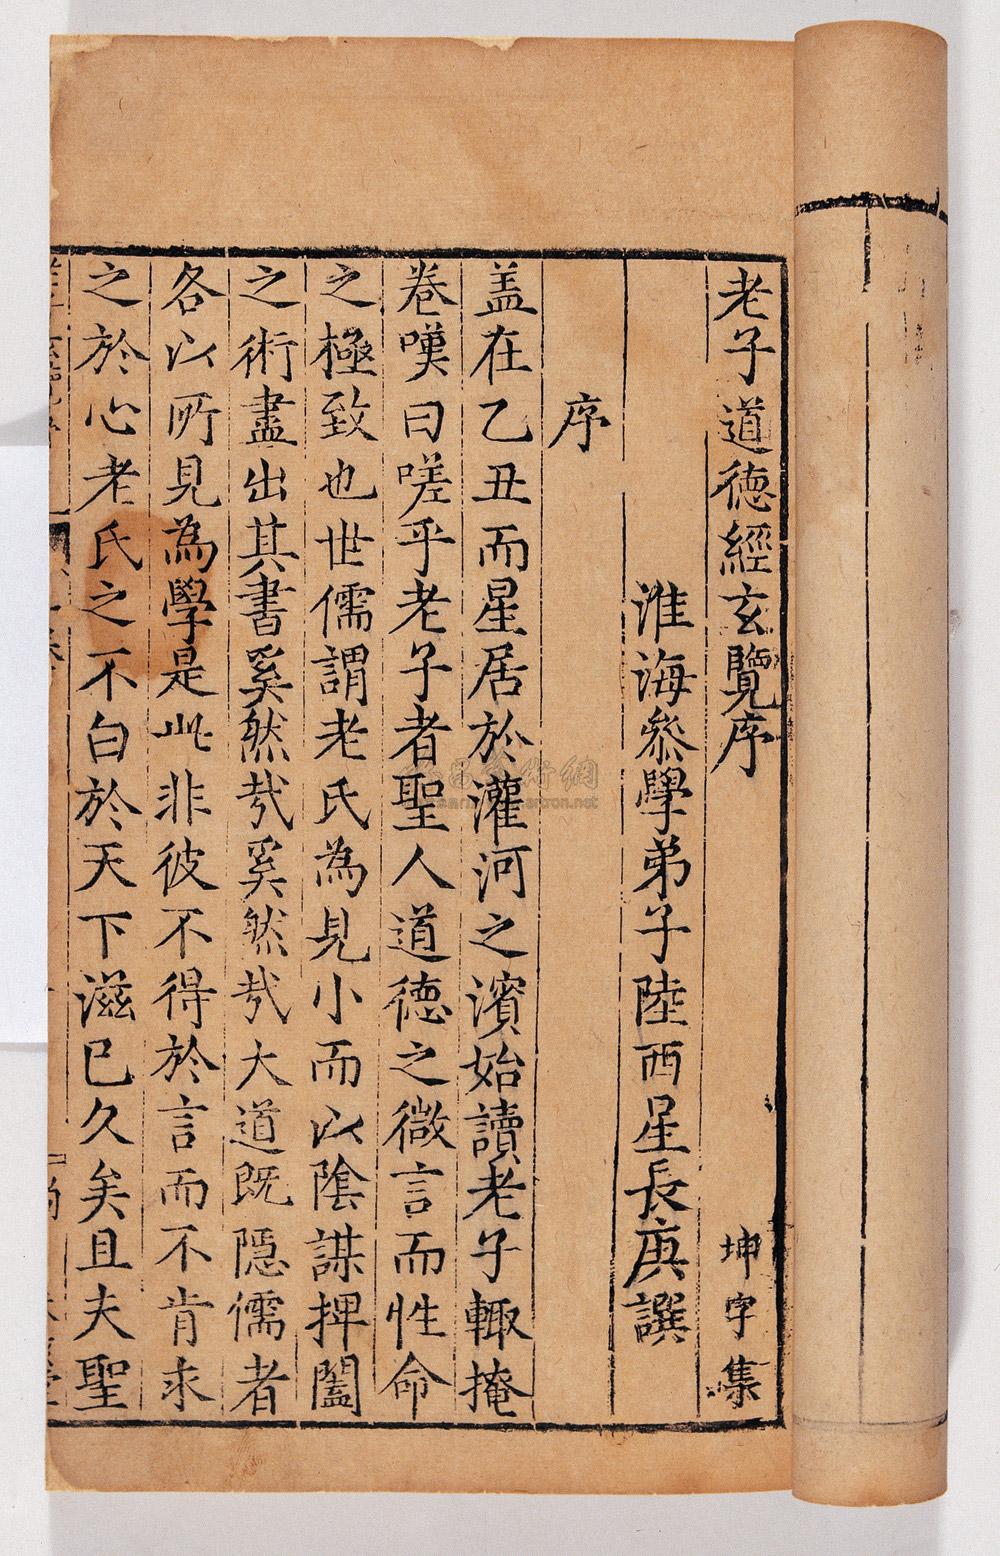 老子道德經玄覽序 坤字集
淮海叅學弟子陸西星長庚譔
序
盖在乙丑而星居於灌河之濱始讀老子輙掩
卷嘆曰嗟乎老子者聖人道德之微言而性命
之極致也世儒謂老氏為見小而以陰謀捭闔
之術盡出其書奚然㢤奚然㢤大道既隱儒者
各以所見為學是此非彼不得於言而不肯求
之於心老氏之不白於天下滋已久矣且夫聖